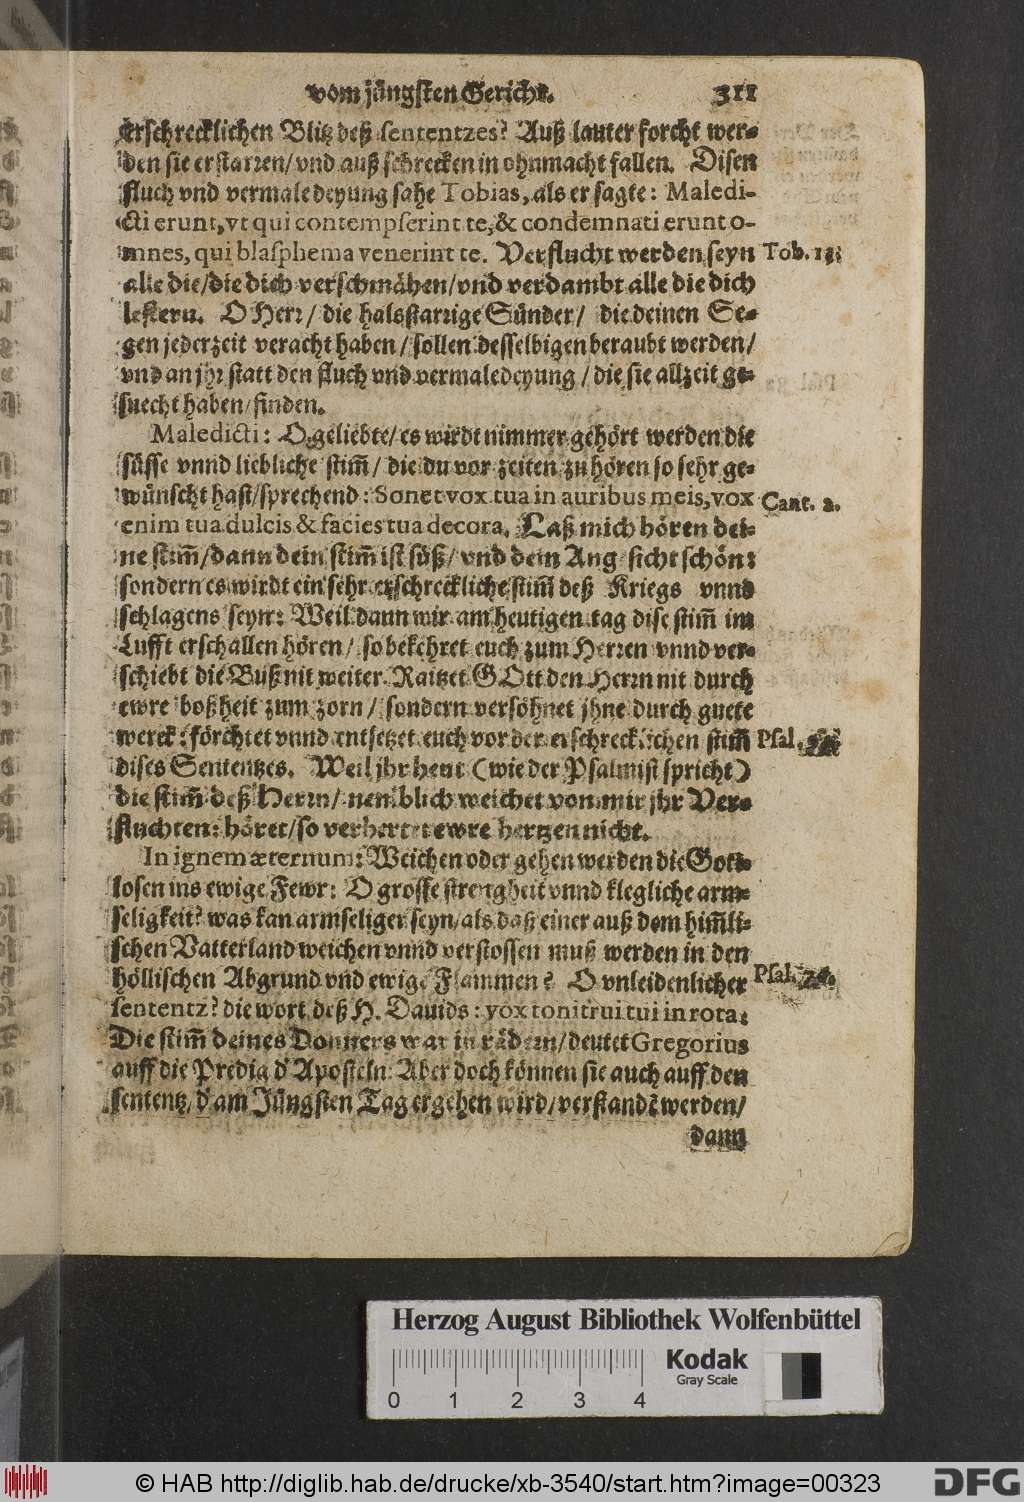 vom jüngsten Gericht. 311
erschrecklichen Blitz deß sententzes? Auß lauter forcht wer-
den sie erstarren/ vnd auß schrecken in ohnmacht fallen. Disen
fluch vnd vermaledeyung sahe Tobias, als er sagte: Maledi-
cti erunt, vt qui contempserint te, & condemnati erunt o-
mnes, qui blasphema venerint te. Verflucht werden seyn Tob. 13.
alle die/ die dich verschmähen/ vnd verdambt alle die dich
lestern. O Herr/ die halsstarrige Sünder/ die deinen Se-
gen jederzeit veracht haben/ sollen desselbigen beraubt werden/
vnd an jhr statt den fluch vnd vermaledeyung/ die sie allzeit ge-
suecht haben/ finden.
Maledicti: O geliebte/ es wirdt nimmer gehört werden die
süsse vnnd liebliche stim̃/ die du vor zeiten zu hören so sehr ge-
wünscht hast/ sprechend: Sonet vox tua in auribus meis, vox Cant. 2.
enim tua dulcis & facies tua decora. Laß mich hören dei-
ne stim̃/ dann dein stim̃ ist süß/ vnd dein Angesicht schön:
sondern es wirdt ein sehr erschreckliche stim̃ deß Kriegs vnnd
schlagens seyn: Weil dann wir am heutigen tag dise stim̃ im
Lufft erschallen hören/ so bekehret euch zum Herren vnnd ver-
schiebt die Buß nit weiter. Raitzet GOtt den Herrn nit durch
ewre boßheit zum zorn/ sondern versöhnet jhne durch guete
werck: förchtet vnnd entsetzet euch vor der erschrecklichen stim̃ Psal.
dises Sententzes. Weil jhr heut (wie der Psalmist spricht)
die stim̃ deß Herrn/ nemblich weichet von mir jhr Ver-
fluchten: höret/ so verhertet ewre hertzen nicht.
In ignem æternum: Weichen oder gehen werden die Gott-
losen ins ewige Fewr: O grosse strengheit vnnd klegliche arm-
seligkeit? was kan armseliger seyn/ als daß einer auß dem him̃li-
schen Vatterland weichen vnnd verstossen muß werden in den
höllischen Abgrund vnd ewige Flammen? O vnleidenlicher Psal. 76.
sententz? die wort deß H. Dauids: vox tonitrui tui in rota:
Die stim̃ deines Donners war in rädern/ deutet Gregorius
auff die Predig d' Aposteln: Aber doch können sie auch auff den
sententz/ d' am Jüngsten Tag ergehen wird/ verstandẽ werden/
dann
Herzog August Bibliothek Wolfenbüttel
Kodak
Gray Scale
0 1 2 3 4
© HAB http://diglib.hab.de/drucke/xb-3540/start.htm?image=00323
DFG